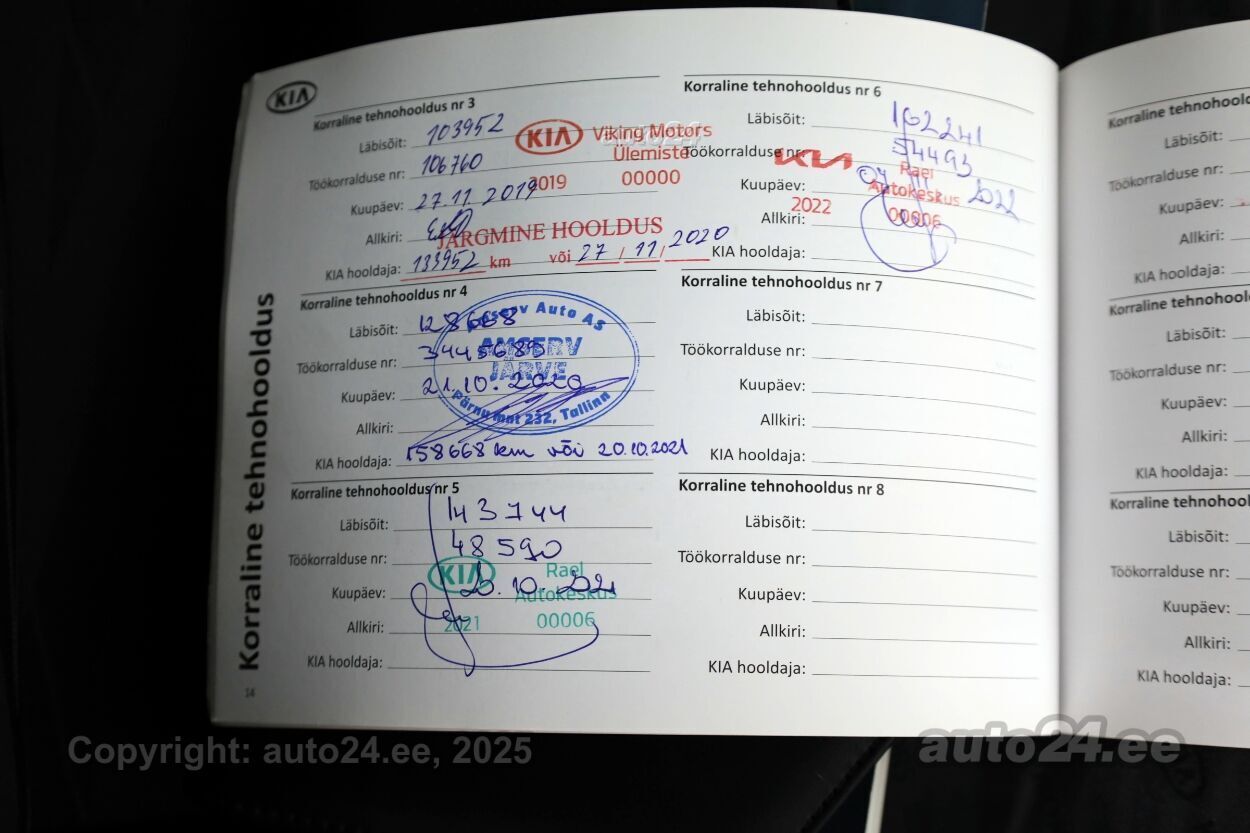 KIA
Korraline tehnohooldus
Korraline tehnohooldus nr 3
Läbisõit: 103952
Töökorralduse nr: 106760
Kuupäev: 27.11.2019
Allkiri:
KIA hooldaja: 133952 km või 27/11/2020
KIA Viking Motors
Ülemiste
2019 00000
JÄRGMINE HOOLDUS
Korraline tehnohooldus nr 4
Läbisõit: 128668
Töökorralduse nr: 3445685
Kuupäev: 21.10.2020
Allkiri:
KIA hooldaja: 158668 km või 20.10.2021
Amserv Auto AS
AMSERV
JÄRVE
Pärnu mnt 232, Tallinn
Korraline tehnohooldus nr 5
Läbisõit: 143744
Töökorralduse nr: 48590
Kuupäev: 20.10.2021
Allkiri:
KIA hooldaja:
KIA Rael
Autokeskus
2021 00006
14
Korraline tehnohooldus nr 6
Läbisõit: 162241
Töökorralduse nr: 54493
Kuupäev: 2022
Allkiri:
KIA hooldaja:
KIA Rael
Autokeskus
2022 00006
Korraline tehnohooldus nr 7
Läbisõit:
Töökorralduse nr:
Kuupäev:
Allkiri:
KIA hooldaja:
Korraline tehnohooldus nr 8
Läbisõit:
Töökorralduse nr:
Kuupäev:
Allkiri:
KIA hooldaja:
Korraline
Läbisõit:
Töökorralduse nr:
Kuupäev:
Allkiri:
KIA hooldaja:
Korraline
Läbisõit:
Töökorralduse nr:
Kuupäev:
Allkiri:
KIA hooldaja:
Korraline
Läbisõit:
Töökorralduse nr:
Kuupäev:
Allkiri:
KIA hooldaja:
auto24
Copyright: auto24.ee, 2025
auto24.ee